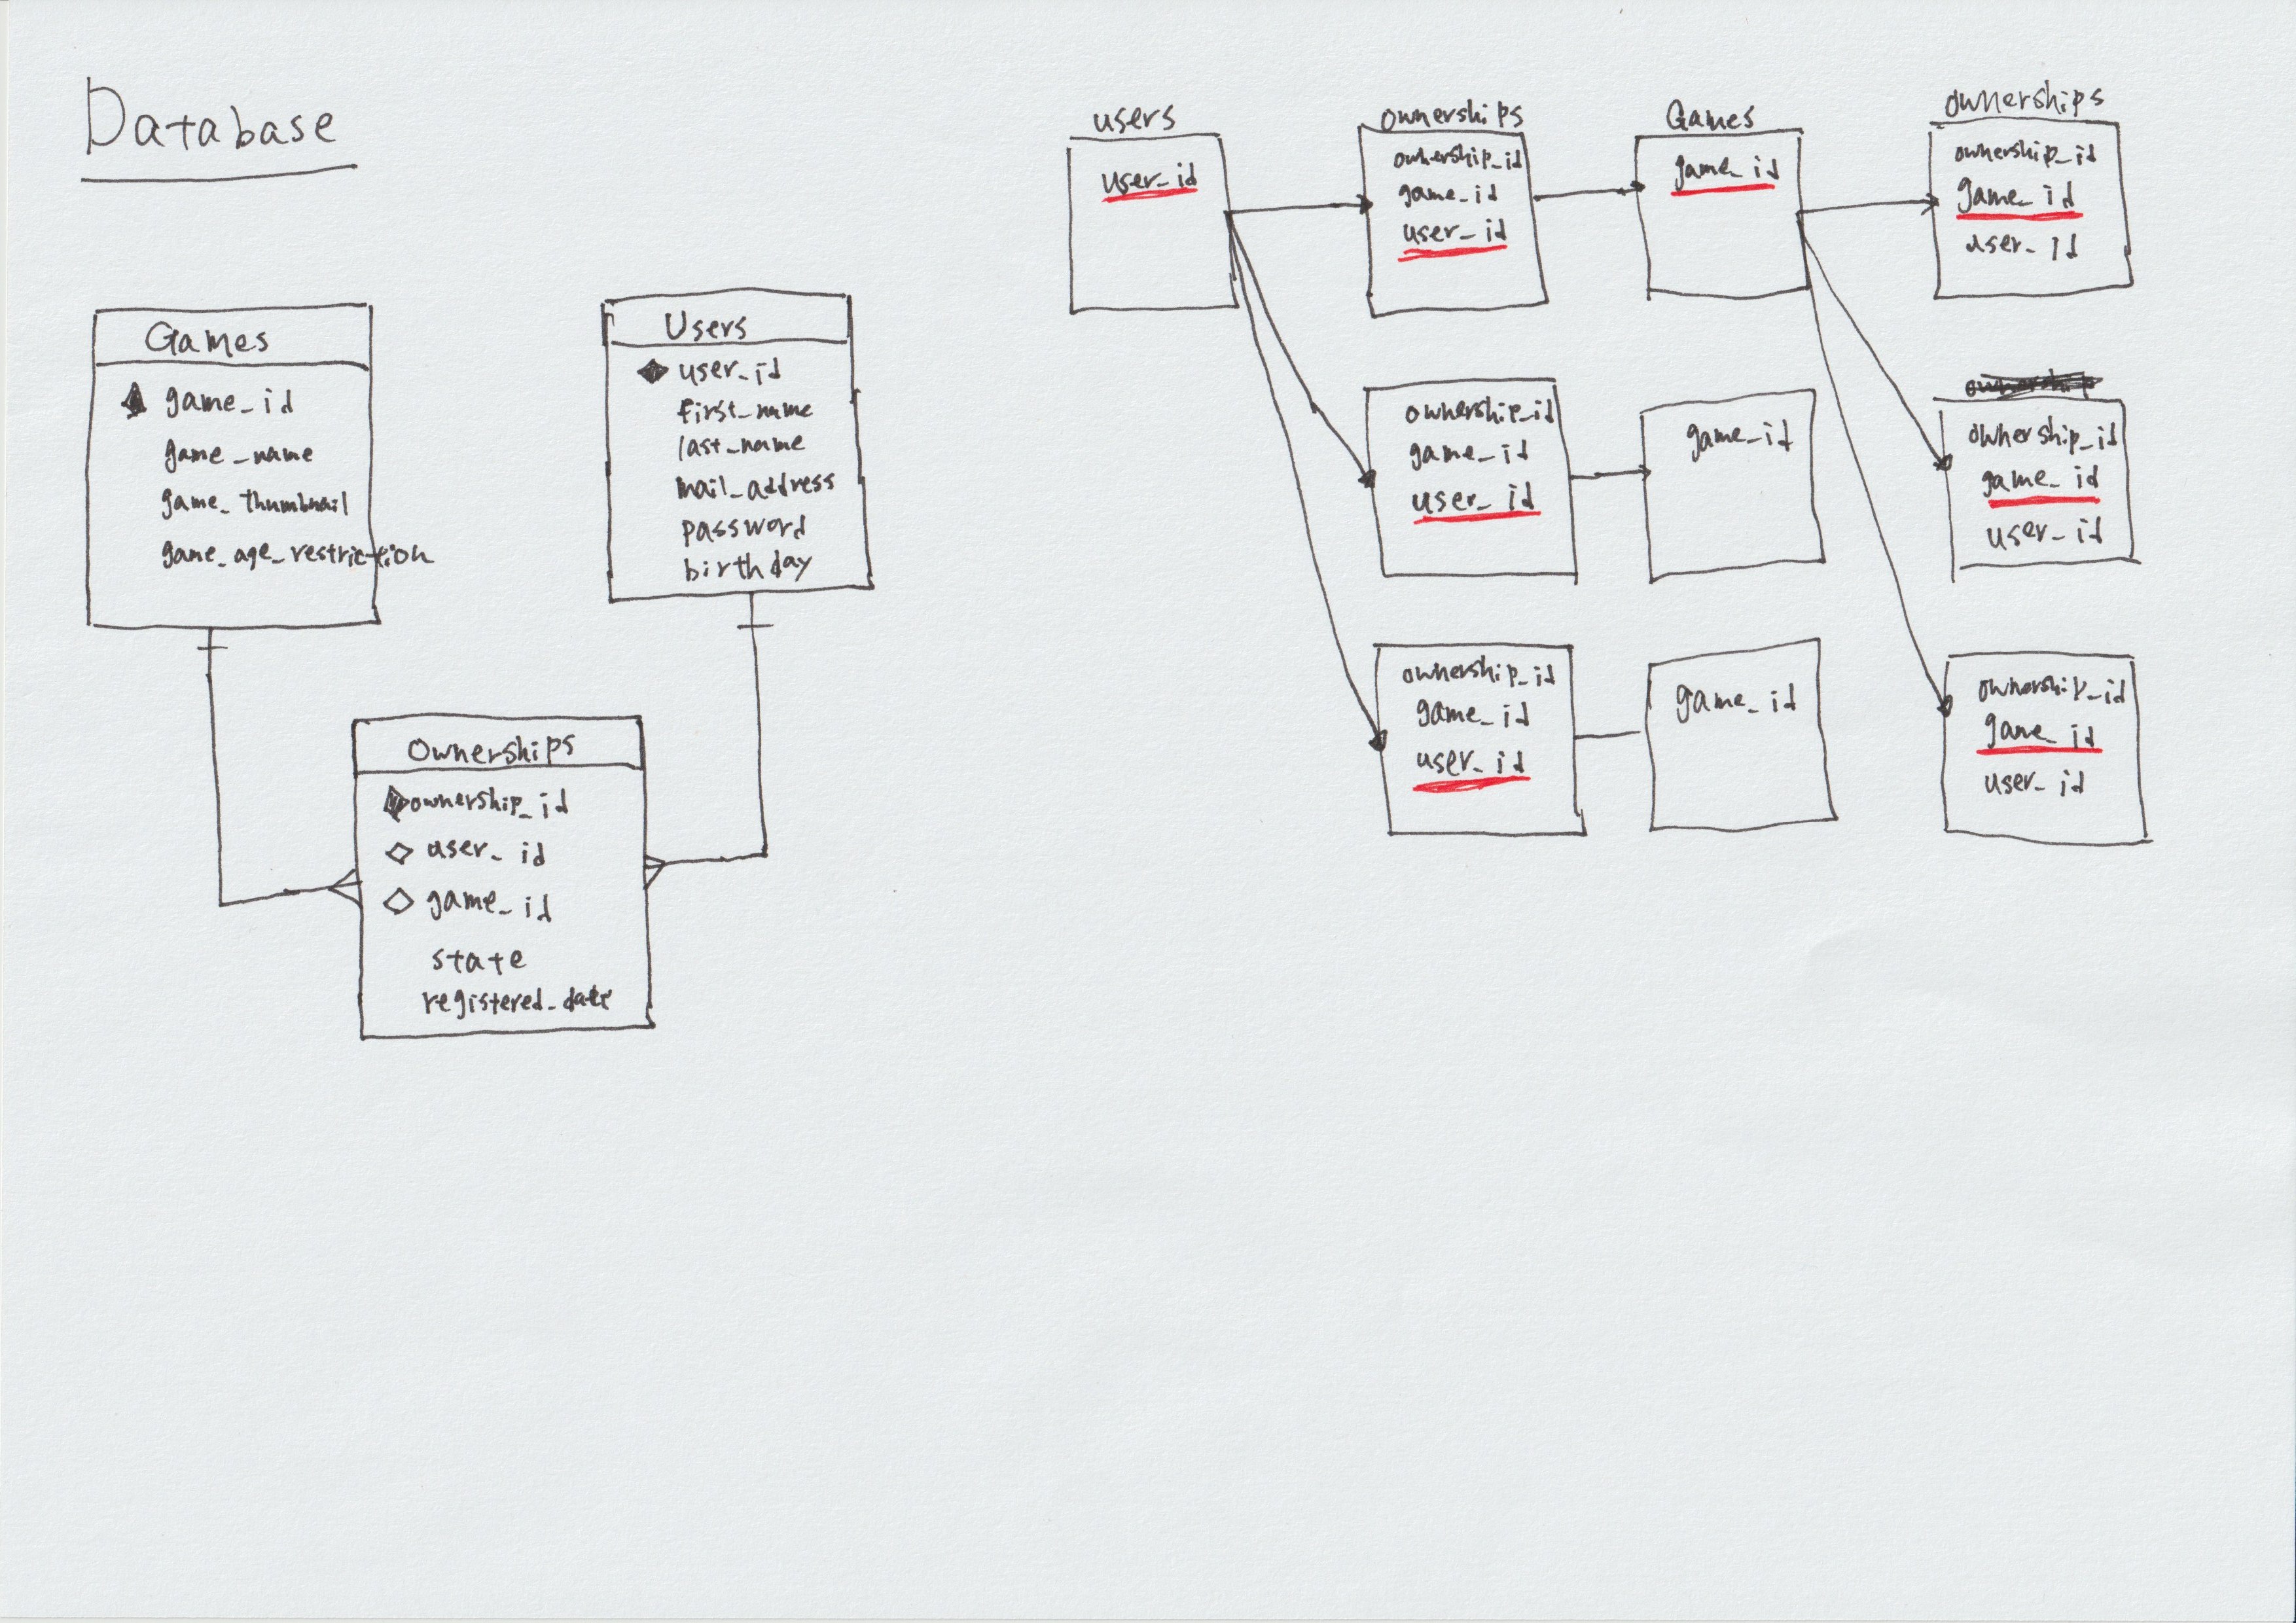 Database
Games
game_id
game_name
game_thumbnail
game_age_restriction
Users
user_id
first_name
last_name
mail_address
password
birthday
Ownerships
ownership_id
user_id
game_id
state
registered_date
users
user_id
ownerships
ownership_id
game_id
user_id
ownership_id
game_id
user_id
ownership_id
game_id
user_id
Games
game_id
game_id
game_id
ownerships
ownership_id
game_id
user_id
ownership_id
game_id
user_id
ownership_id
game_id
user_id